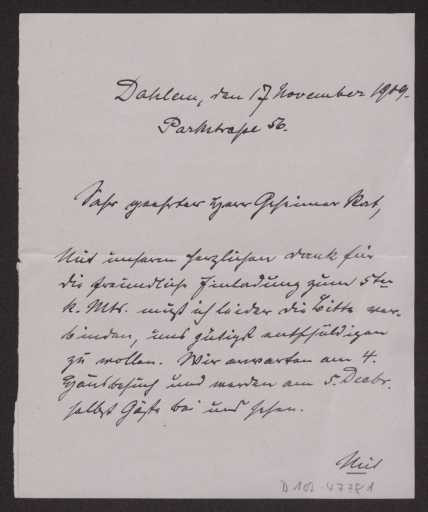 Dahlem, den 17 November 1909.
Parkstraße 56.
Sehr geehrter Herr Geheimer Rat,
Mit unserem herzlichen Dank für
die freundliche Einladung zum 5ten
k. Mts. muß ich leider die Bitte ver-
binden, uns gütigst entschuldigen
zu wollen. Wir erwarten am 4.
Hausbesuch und werden am 5. Decbr.
selbst Gäste bei uns sehen.
Mit
D 102-47781